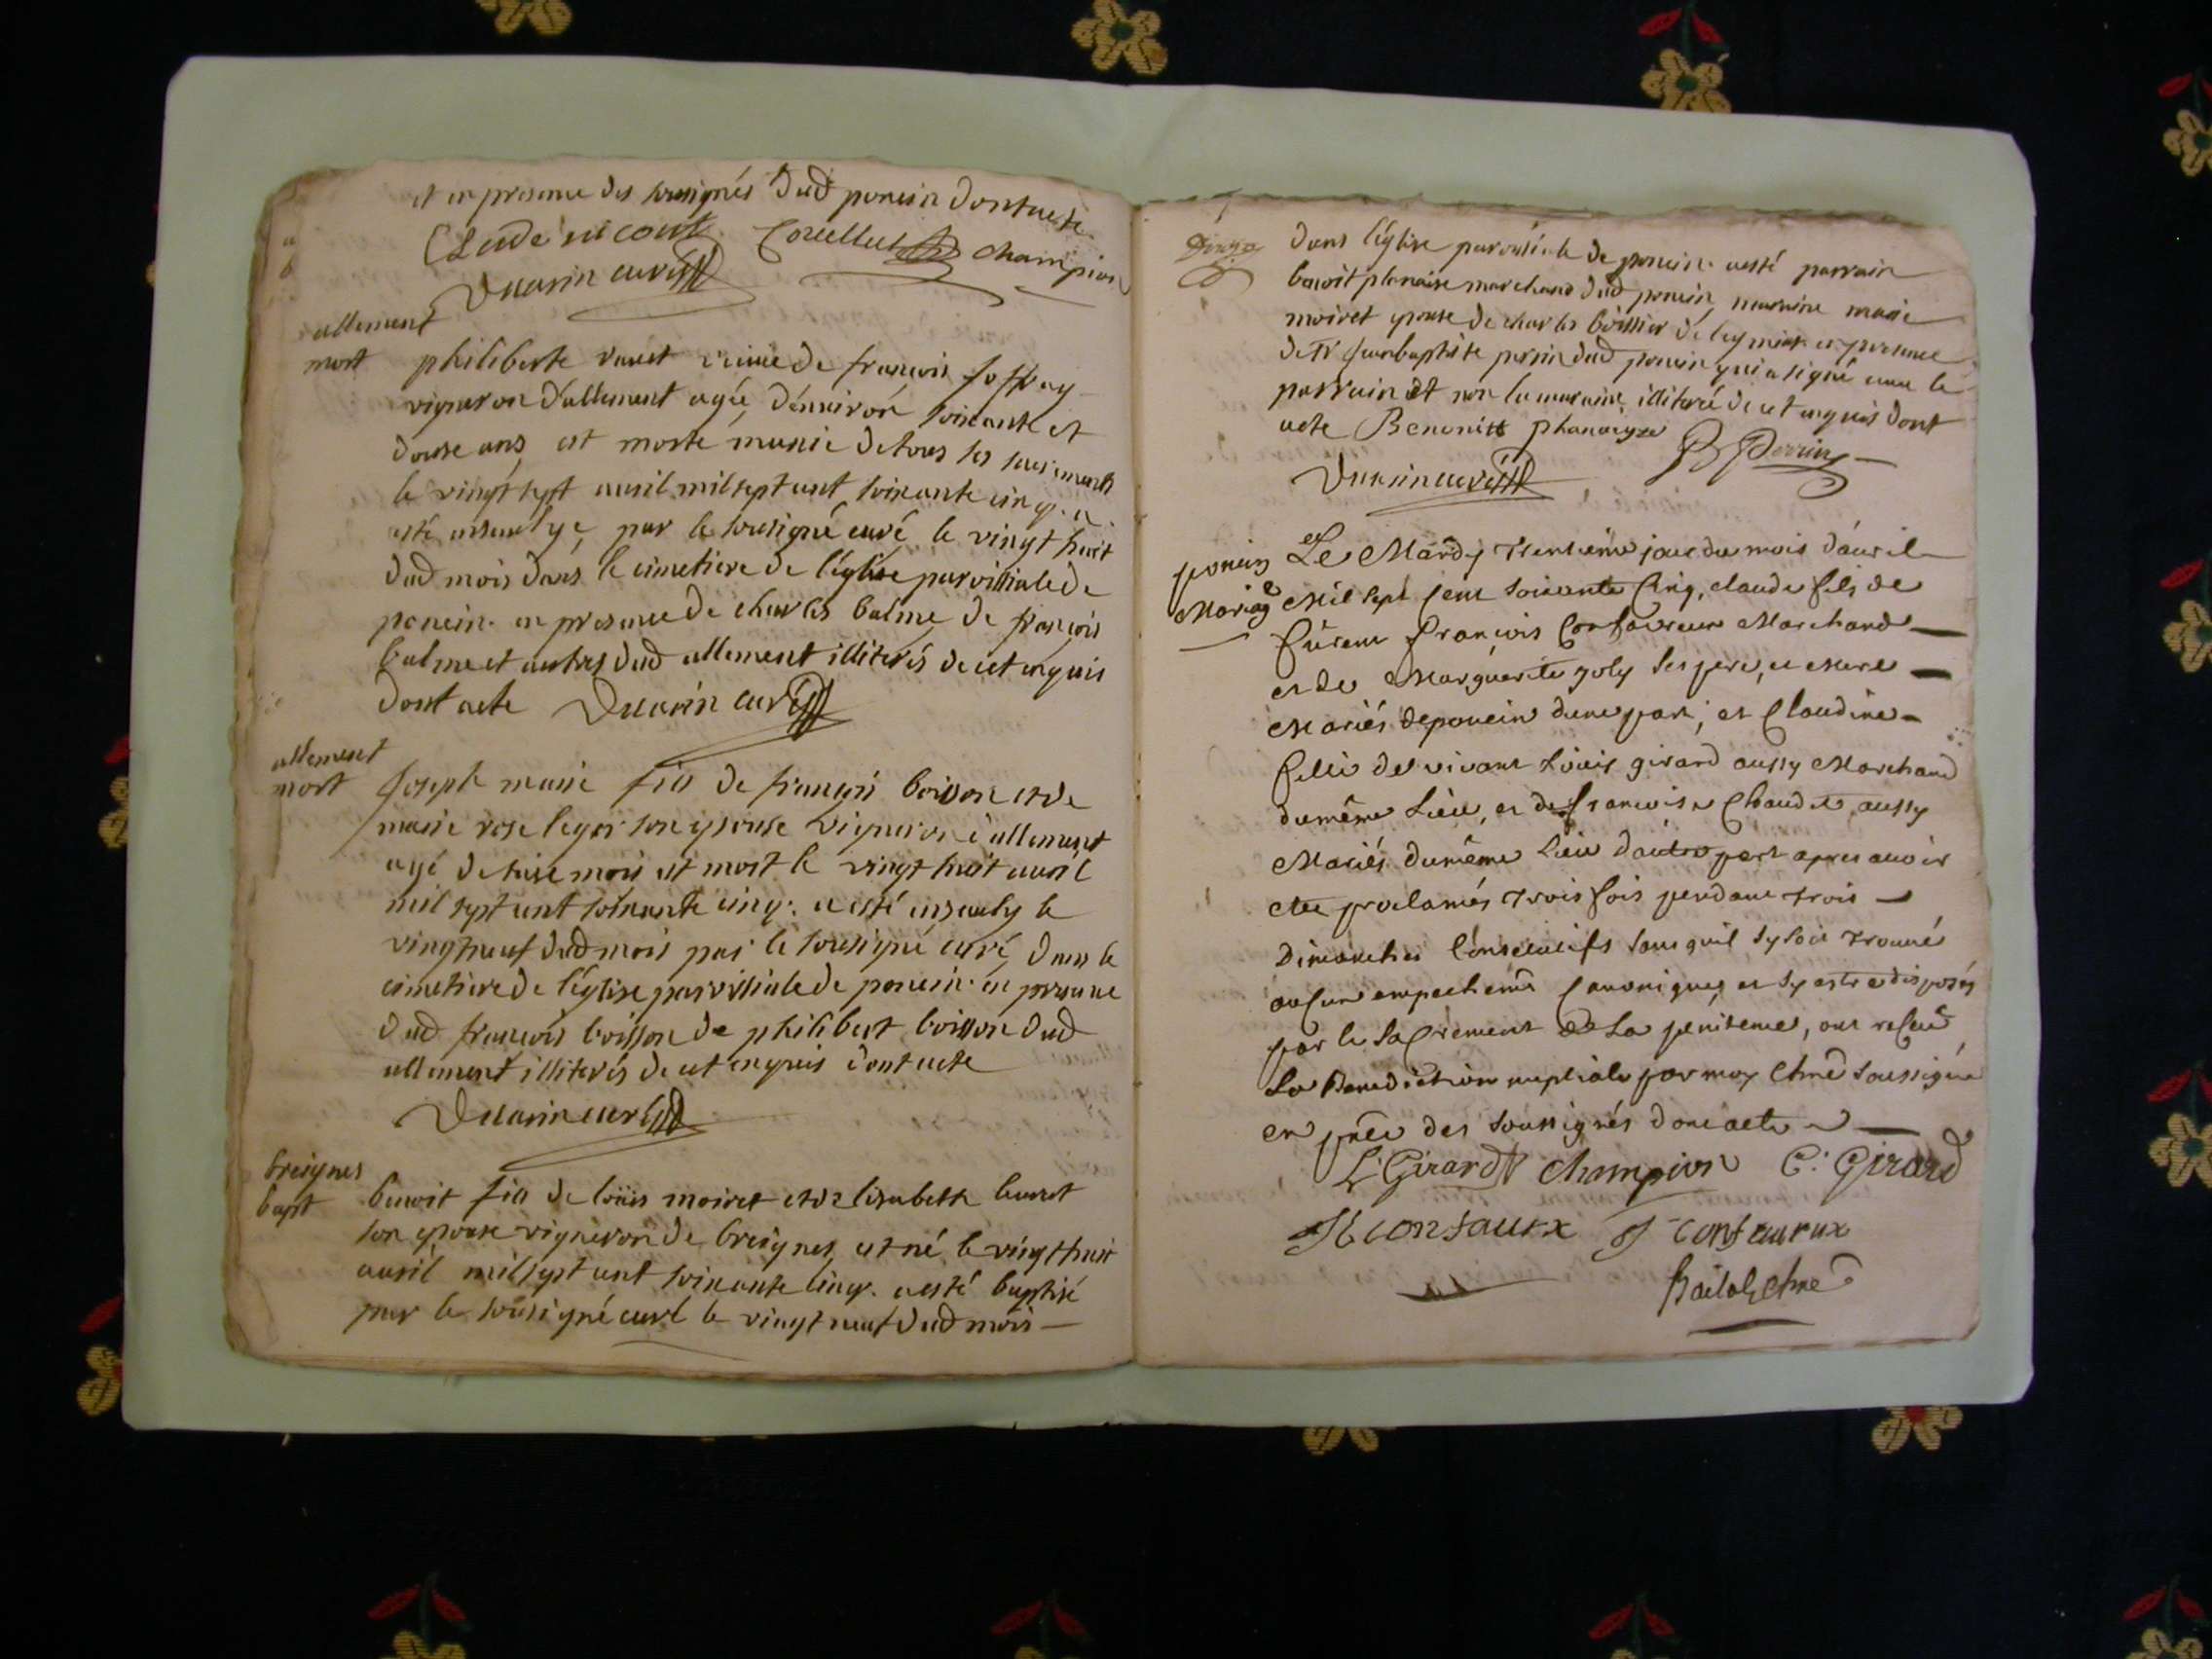 et en presence des sousignés dud poncin dont acte
Claude
champion
curé
allement
mort
philiberte veuve de françois
vigneron d'allement agée d'environ soixante et
douse ans est morte munie de tous les sacrements
le vingt sept avril mil sept cent soixante cinq. a
esté ensevelye par le sousigné curé le vingt huit
dud mois dans le cimetiere de l'église paroissiale de
poncin. en presence de charles balme de françois
balme et autres dud allement illiterés de cet enquis
dont acte curé
allement
mort
Joseph marie fils de françois boisson et de
marie rose son epouse vigneron d'allement
agé de seise mois est mort le vingt huit avril
mil sept cent soixante cinq. a esté ensevely le
vingt neuf dud mois par le sousigné curé dans le
cimetiere de l'église paroissiale de poncin. en presence
dud françois boisson de philibert boisson dud
allement illiterés de cet enquis dont acte
curé
breignes
bapt
benoit fils de loüis moiret et d'elisabeth
son epouse vigneron de breignes est né le vingt huit
avril mil sept cent soixante cinq. a esté baptisé
par le sousigné curé le vingt neuf dud mois
dans l'église paroissiale de poncin. a esté parrain
benoit marchand dud poncin, marraine marie
moiret epouse de charles de en presence
de Sr Jean baptiste perrin dud poncin qui a signé avec le
parrain et non la maraine illiterée de cet enquis dont
acte
Perrin
curé
poncin
Mariage
Le Mardy trentième jour du mois d'avril
Mil sept cent soixante cinq, claude fils de
François Marchand
et de Marguerite joly ses pere, et mere
Mariés de poncin d'une part; et Claudine
fille de vivant Loüis girard aussy Marchand
du même Lieu, et de francoise aussy
Mariés du même Lieu d'autre part apres avoir
été proclamés trois fois pendant trois
Dimanches Consecutifs sans quil sy soit trouvé
aucun empechemt Canonique, et sy estre disposés
par le sacrement de la penitence, ont reçeu
La Benediction nuptiale par moy soussigné
en pñce des soussignés dont acte
L Girard champion C. Girard